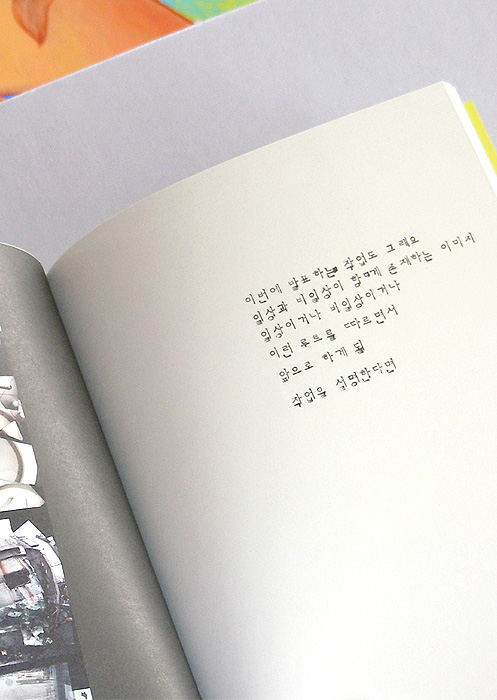 이번에 발표하는 작업도 그래요
일상과 비일상이 함께 존재하는 이미지
일상이거나 비일상이거나
이런 루트를 따르면서
앞으로 하게 될
작업을 설명한다면